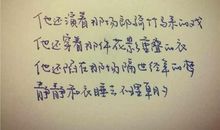 他还演着那场郎骑竹马来的戏
他还穿着那件花影重叠的衣
他还陷在那场隔世经年的梦
静静和衣睡去不理朝夕